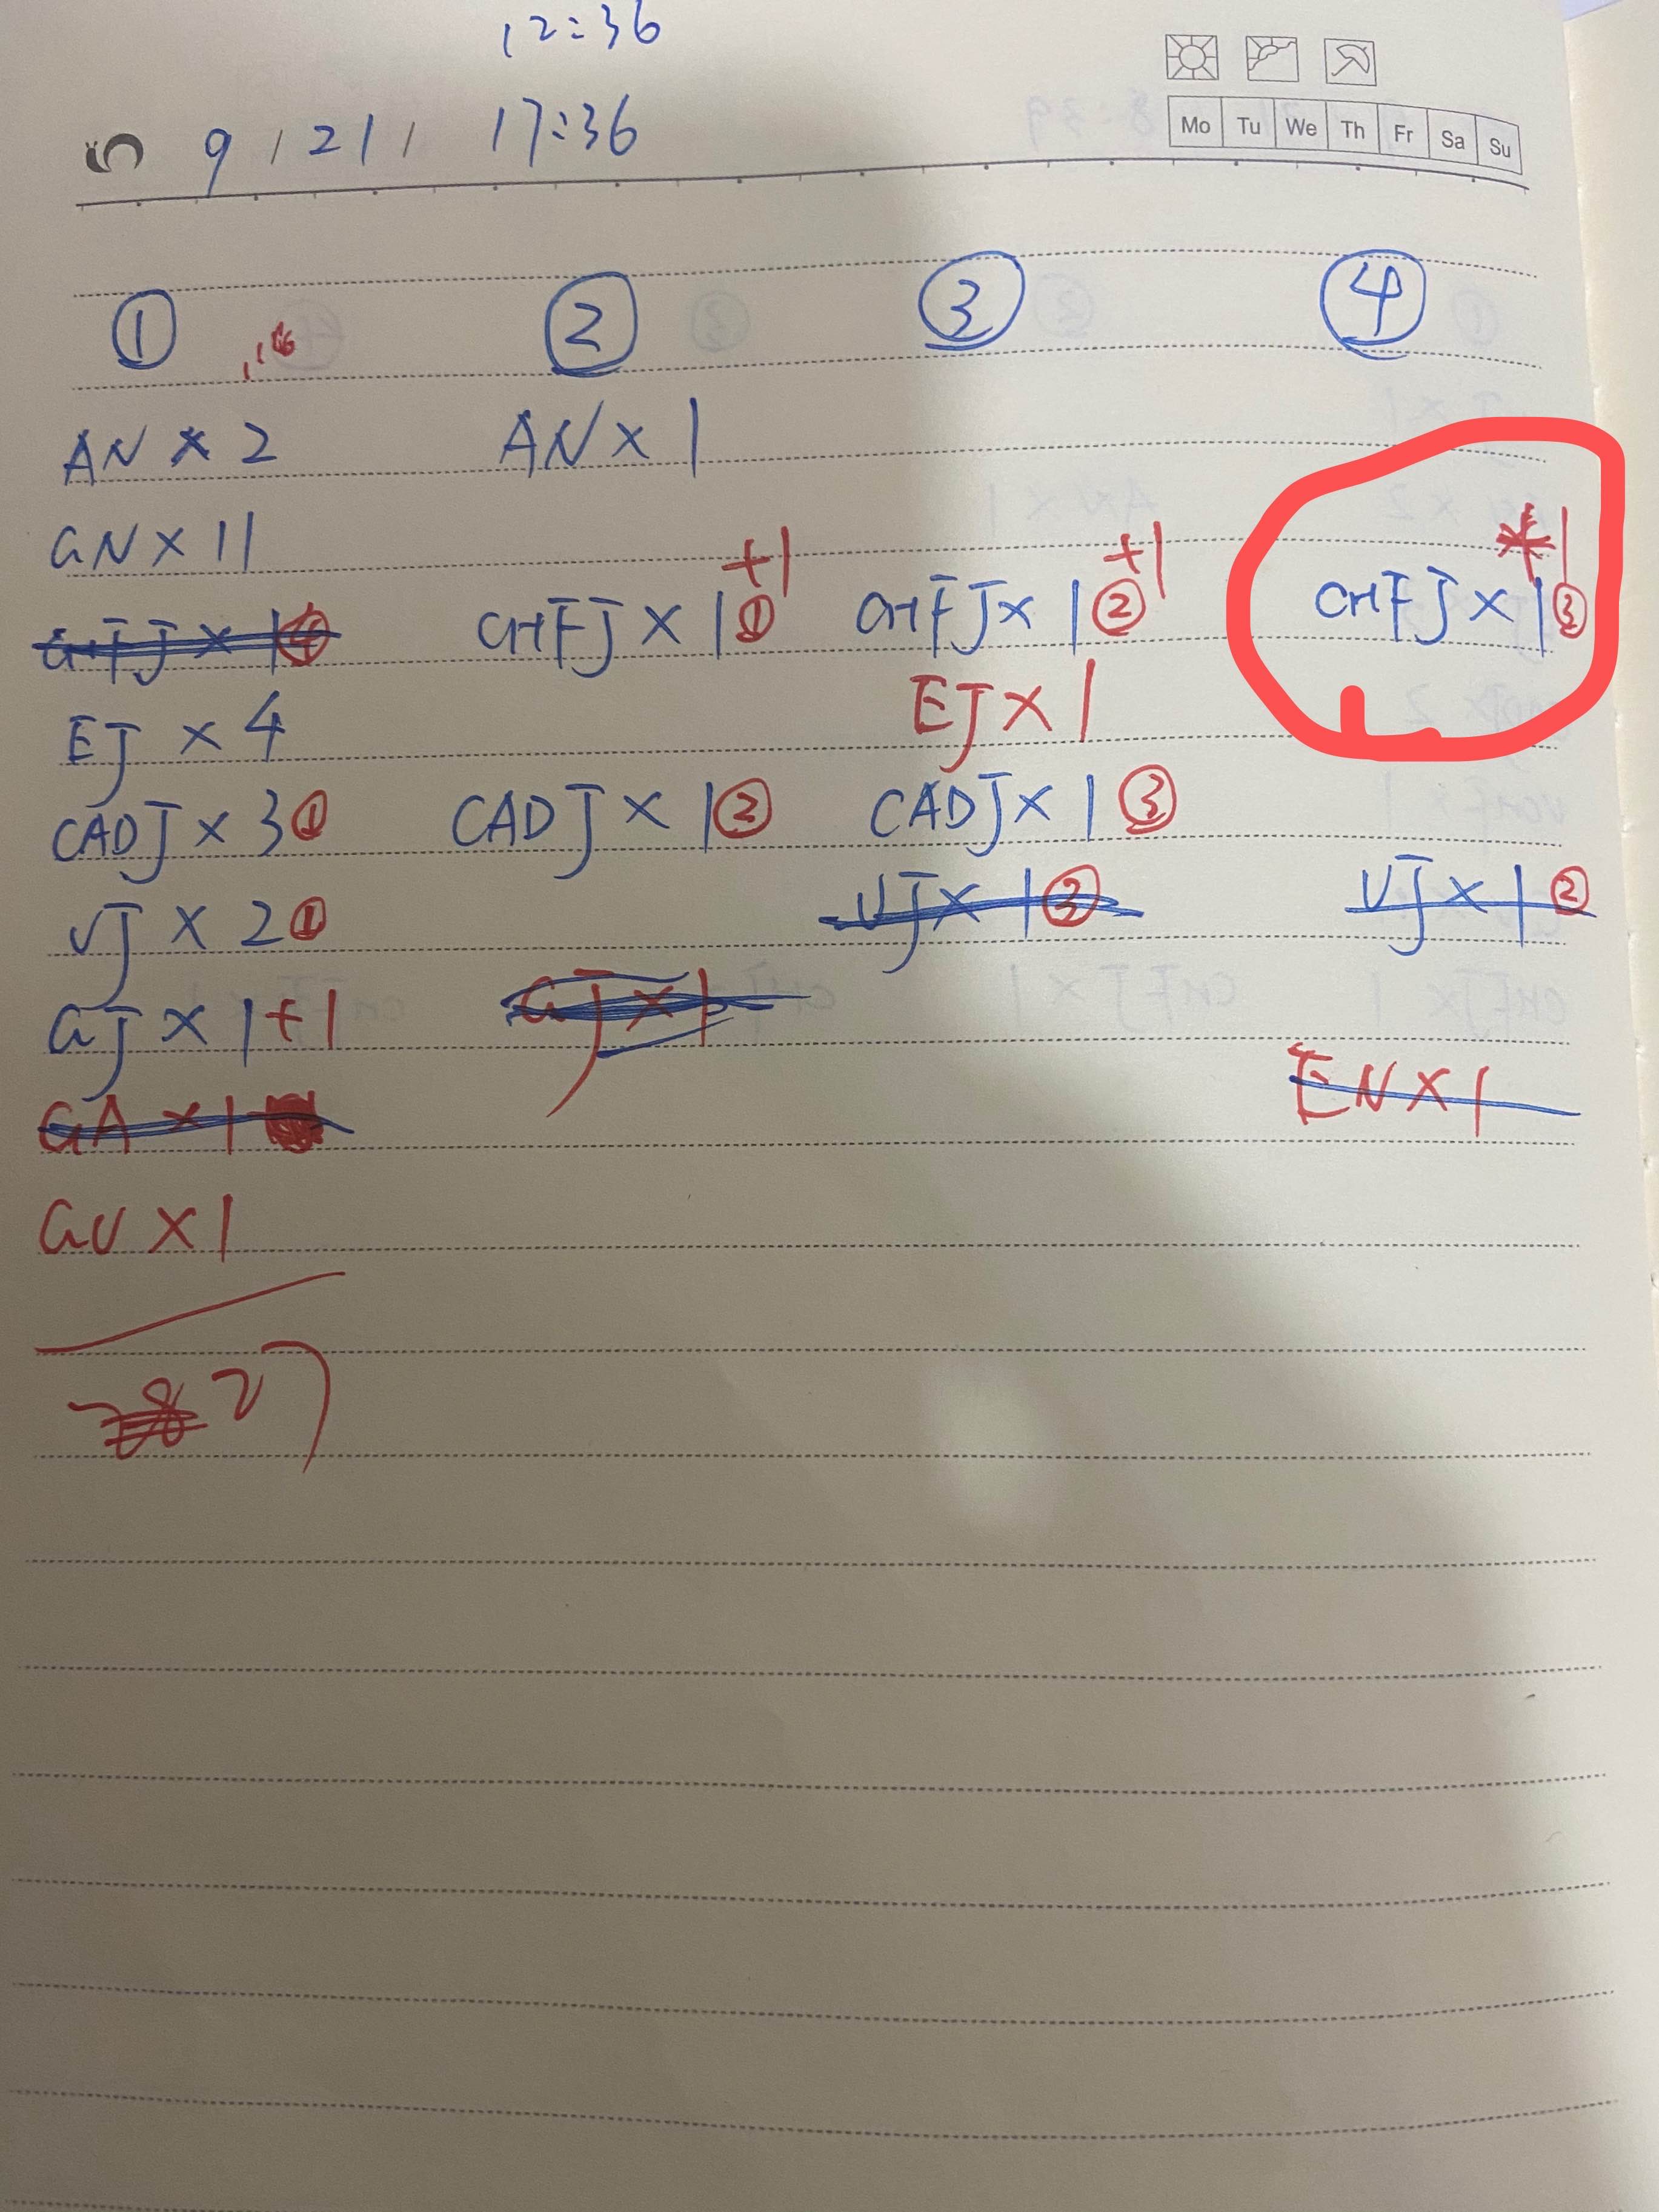 12:36
9 / 21 / 17:36
Mo Tu We Th Fr Sa Su
① ② ③ ④
AN × 2 AN × 1
GN × 11
+1 +1 1
GHFJ × 1④ CHFJ × 1① CHFJ × 1② CHFJ × 1③
EJ × 4 EJ × 1
CADJ × 3① CADJ × 1② CADJ × 1③
VJ × 2① VJ × 1③ VJ × 1②
GJ × 1+1 GJ × 1
GA × 1 EN × 1
GV × 1
27